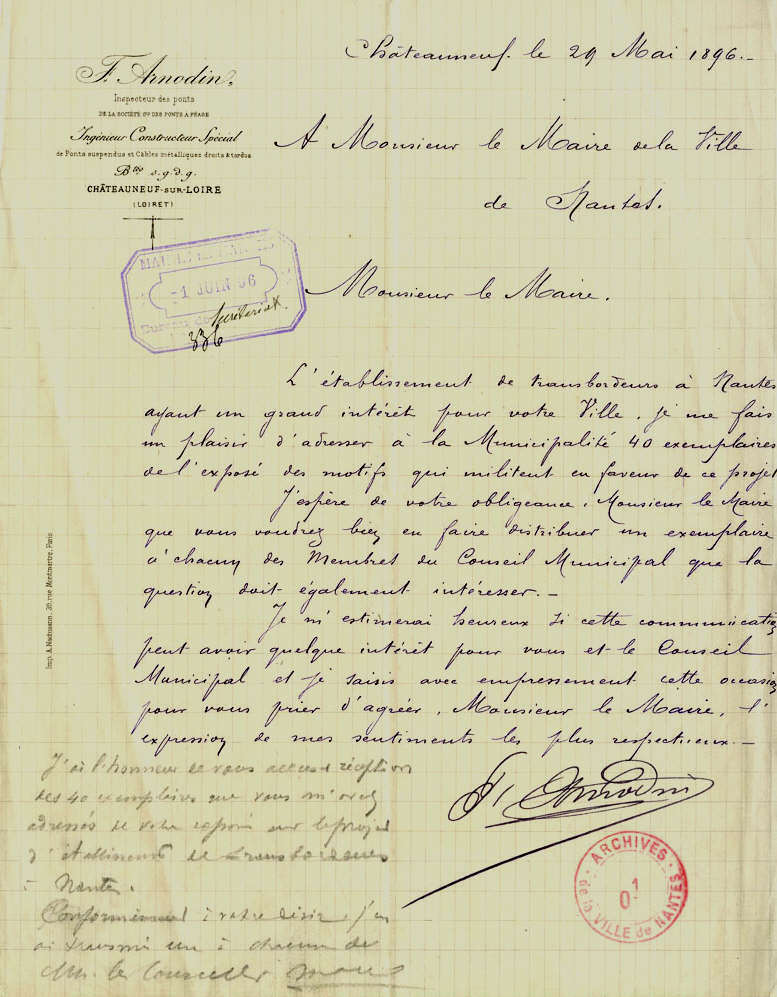 Châteauneuf. le 29 Mai 1896.-
F. Arnodin,
Inspecteur des ponts
DE LA SOCIÉTÉ Gle DES PONTS A PÉAGE
Ingénieur Constructeur Spécial
de Ponts suspendus et Câbles métalliques droits & tordus
Btés s.g.d.g.
CHÂTEAUNEUF-SUR-LOIRE
(LOIRET)
A Monsieur le Maire de la Ville
de Nantes.
1 JUIN 96
Secrétariat
336
Monsieur le Maire.
L'établissement de transbordeurs à Nantes
ayant un grand intérêt pour votre Ville, je me fais
un plaisir d'adresser à la Municipalité 40 exemplaires
de l'exposé des motifs qui militent en faveur de ce projet
J'espère de votre obligeance, Monsieur le Maire
que vous voudrez bien en faire distribuer un exemplaire
à chacun des Membres du Conseil Municipal que la
question doit également intéresser.-
Je m'estimerai heureux si cette communication
peut avoir quelque intérêt pour vous et le Conseil
Municipal et je saisis avec empressement cette occasion
pour vous prier d'agréer, Monsieur le Maire, l'
expression de mes sentiments les plus respectueux.-
F. Arnodin
Imp. A. Nachmann, 20, rue Montmartre, Paris
J'ai l'honneur de vous accuser réception
des 40 exemplaires que vous m'avez
adressés de votre exposé sur le projet
d'établissement de transbordeurs
à Nantes.
Conformément à votre désir, j'en
ai transmis un à chacun de
MM. les Conseillers
ARCHIVES
de la VILLE de NANTES
01